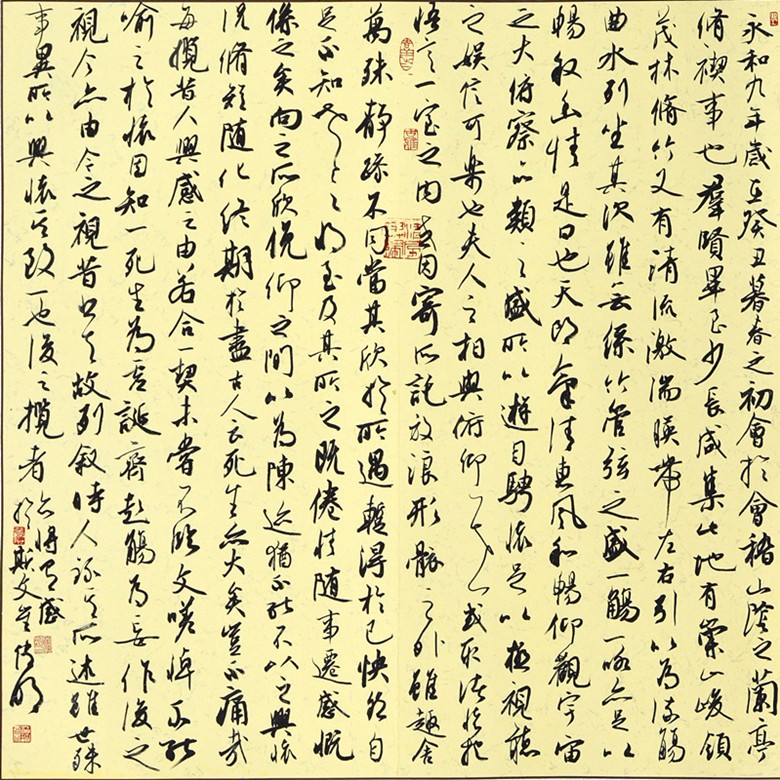 永和九年歲在癸丑暮春之初會於會稽山陰之蘭亭
脩禊事也羣賢畢至少長咸集此地有崇山峻領
茂林脩竹又有清流激湍暎帶左右引以為流觴
曲水列坐其次雖無絲竹管弦之盛一觴一詠亦足以
暢敘幽情是日也天朗氣清惠風和暢仰觀宇宙
之大俯察品類之盛所以遊目騁懷足以極視聽
之娛信可樂也夫人之相與俯仰一世或取諸懷抱
悟言一室之內或因寄所託放浪形骸之外雖趣舍
萬殊靜躁不同當其欣於所遇蹔得於己怏然自
足不知老之將至及其所之既倦情隨事遷感慨
係之矣向之所欣俛仰之間以為陳迹猶不能不以之興懷
況脩短隨化終期於盡古人云死生亦大矣豈不痛哉
每攬昔人興感之由若合一契未嘗不臨文嗟悼不能
喻之於懷固知一死生為虛誕齊彭殤為妄作後之
視今亦由今之視昔悲夫故列敘時人錄其所述雖世殊
事異所以興懷其致一也後之攬者亦將有感
於斯文